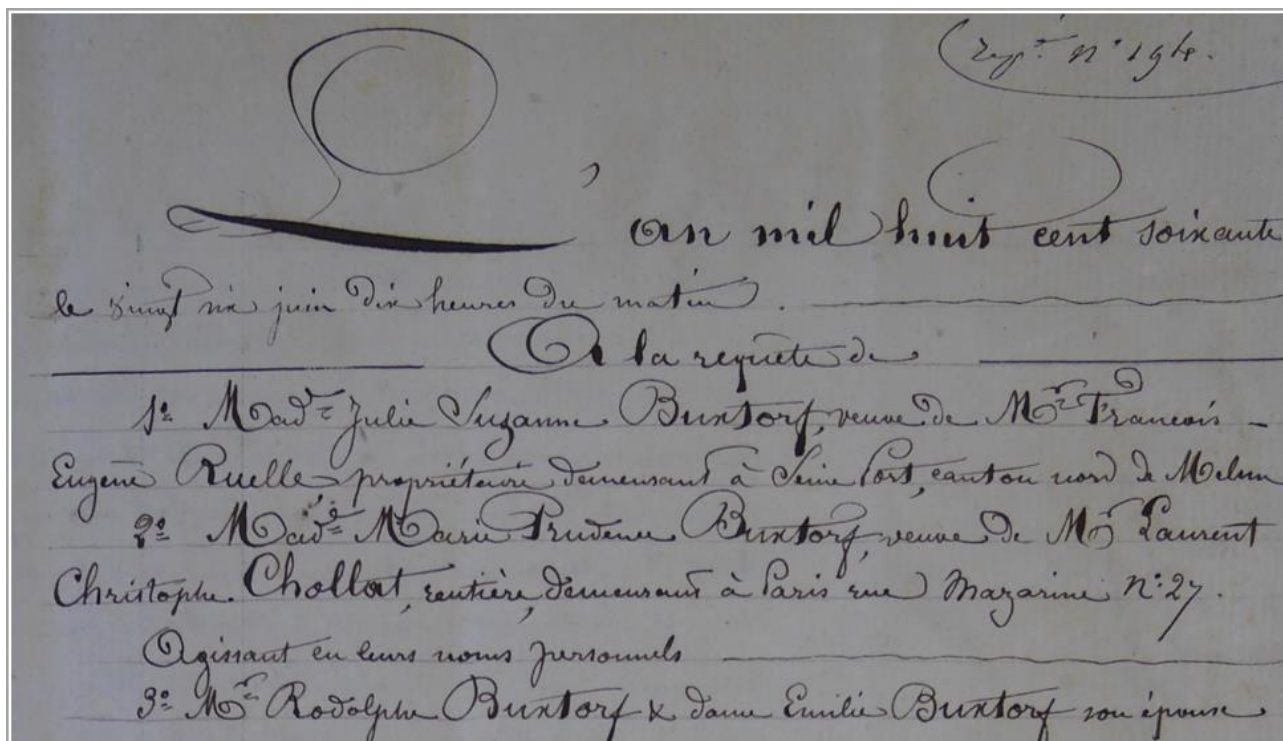 Rep.re n° 194.
L'an mil huit cent soixante
le vingt six juin dix heures du matin.
A la requête de
1° Mad.e Julie Suzanne Buxtorf, veuve de M.r François -
Eugène Ruelle, propriétaire demeurant à Seine Port, canton nord de Melun
2° Mad.e Marie Prudence Buxtorf, veuve de M.r Laurent
Christophe Chollat, rentière, demeurant à Paris rue Mazarine N° 27.
Agissant en leurs noms personnels
3° M.r Rodolphe Buxtorf & dame Emilie Buxtorf son épouse